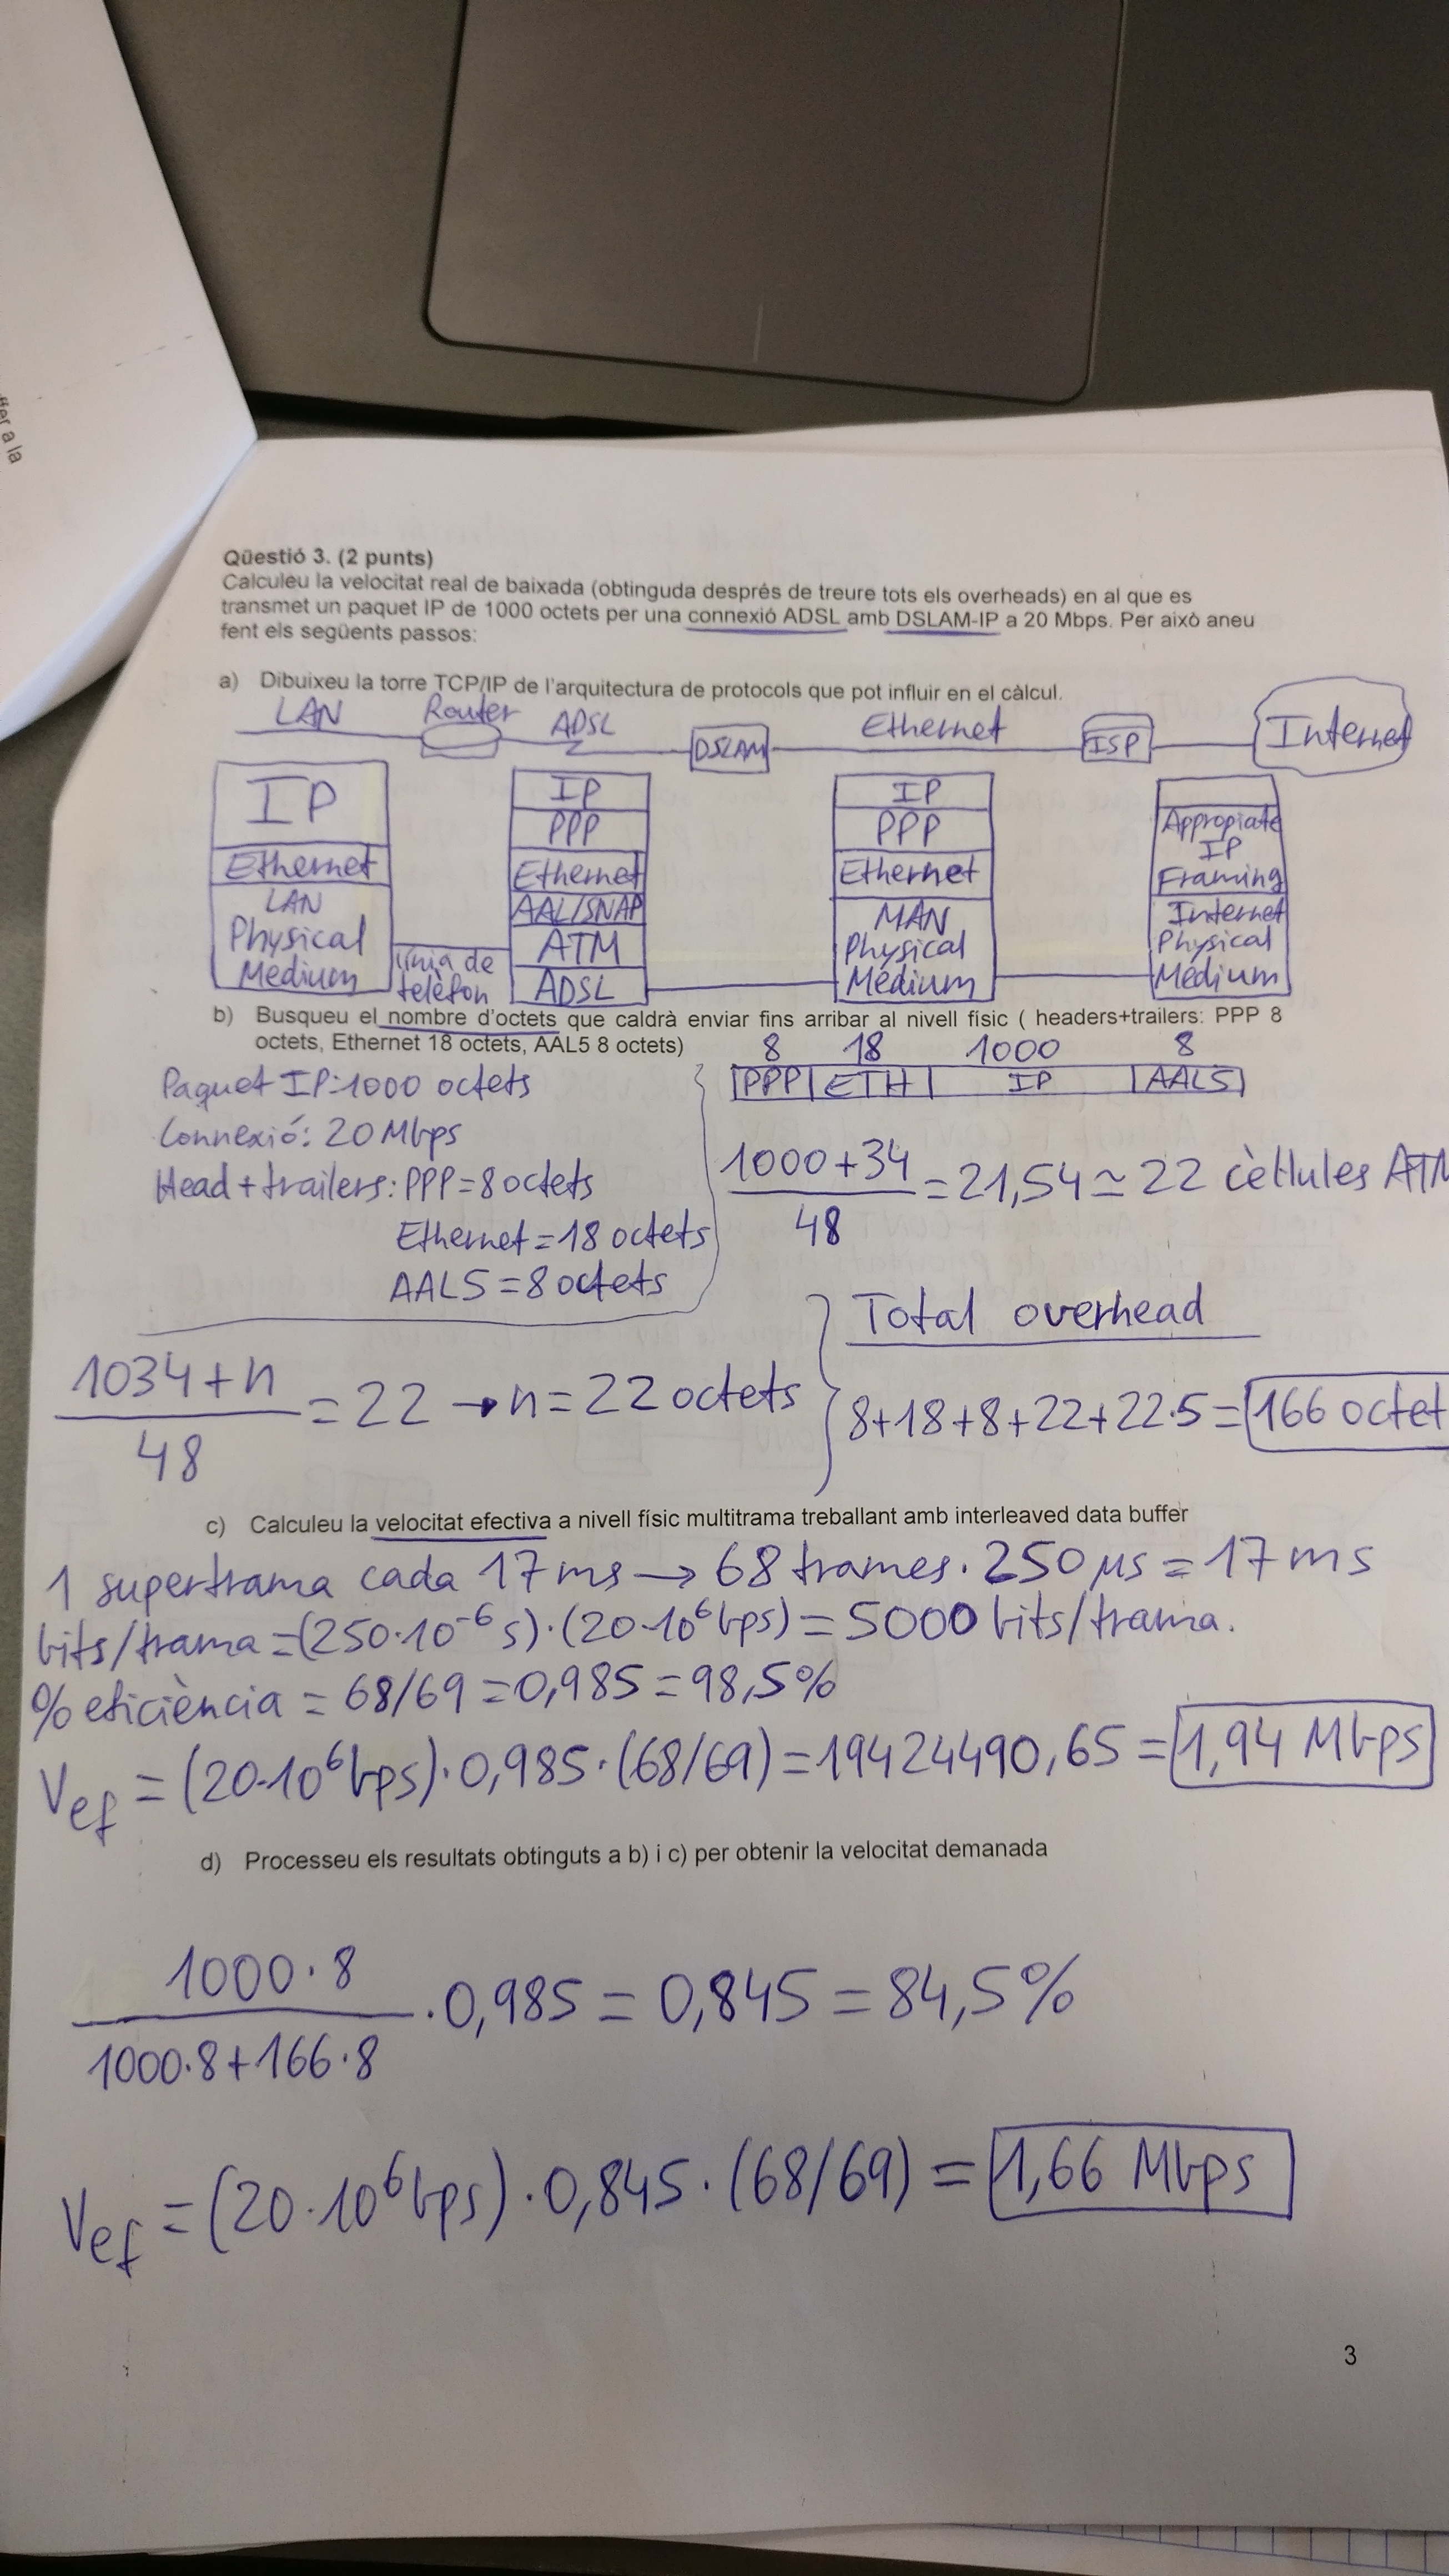 ffer a la
Qüestió 3. (2 punts)
Calculeu la velocitat real de baixada (obtinguda després de treure tots els overheads) en al que es
transmet un paquet IP de 1000 octets per una connexió ADSL amb DSLAM-IP a 20 Mbps. Per això aneu
fent els següents passos:
a) Dibuixeu la torre TCP/IP de l'arquitectura de protocols que pot influir en el càlcul.
LAN Router ADSL DSLAM Ethernet ISP Internet
IP IP IP
PPP PPP Appropiate
IP
Ethernet Ethernet Ethernet Framing
LAN AAL/SNAP MAN Internet
Physical ATM Physical Physical
Medium línia de telèfon ADSL Medium Medium
b) Busqueu el nombre d'octets que caldrà enviar fins arribar al nivell físic ( headers+trailers: PPP 8
octets, Ethernet 18 octets, AAL5 8 octets)
8 18 1000 8
PPP ETH IP AAL5
Paquet IP: 1000 octets
Connexió: 20 Mbps
Head + trailers: PPP = 8 octets
Ethernet = 18 octets
AAL5 = 8 octets
1000+34
= 21,54 ≃ 22 cèl·lules ATM
48
1034+n
= 22 → n = 22 octets
48
Total overhead
8+18+8+22+22·5 = 166 octet
c) Calculeu la velocitat efectiva a nivell físic multitrama treballant amb interleaved data buffer
1 supertrama cada 17 ms → 68 trames · 250 μs = 17 ms
bits/trama = (250·10⁻⁶ s)·(20·10⁶ bps) = 5000 bits/trama.
% eficiència = 68/69 = 0,985 = 98,5%
Vef = (20·10⁶ bps)·0,985·(68/69) = 19424490,65 = 1,94 Mbps
d) Processeu els resultats obtinguts a b) i c) per obtenir la velocitat demanada
1000·8
· 0,985 = 0,845 = 84,5%
1000·8+166·8
Vef = (20·10⁶ bps)·0,845·(68/69) = 1,66 Mbps
3